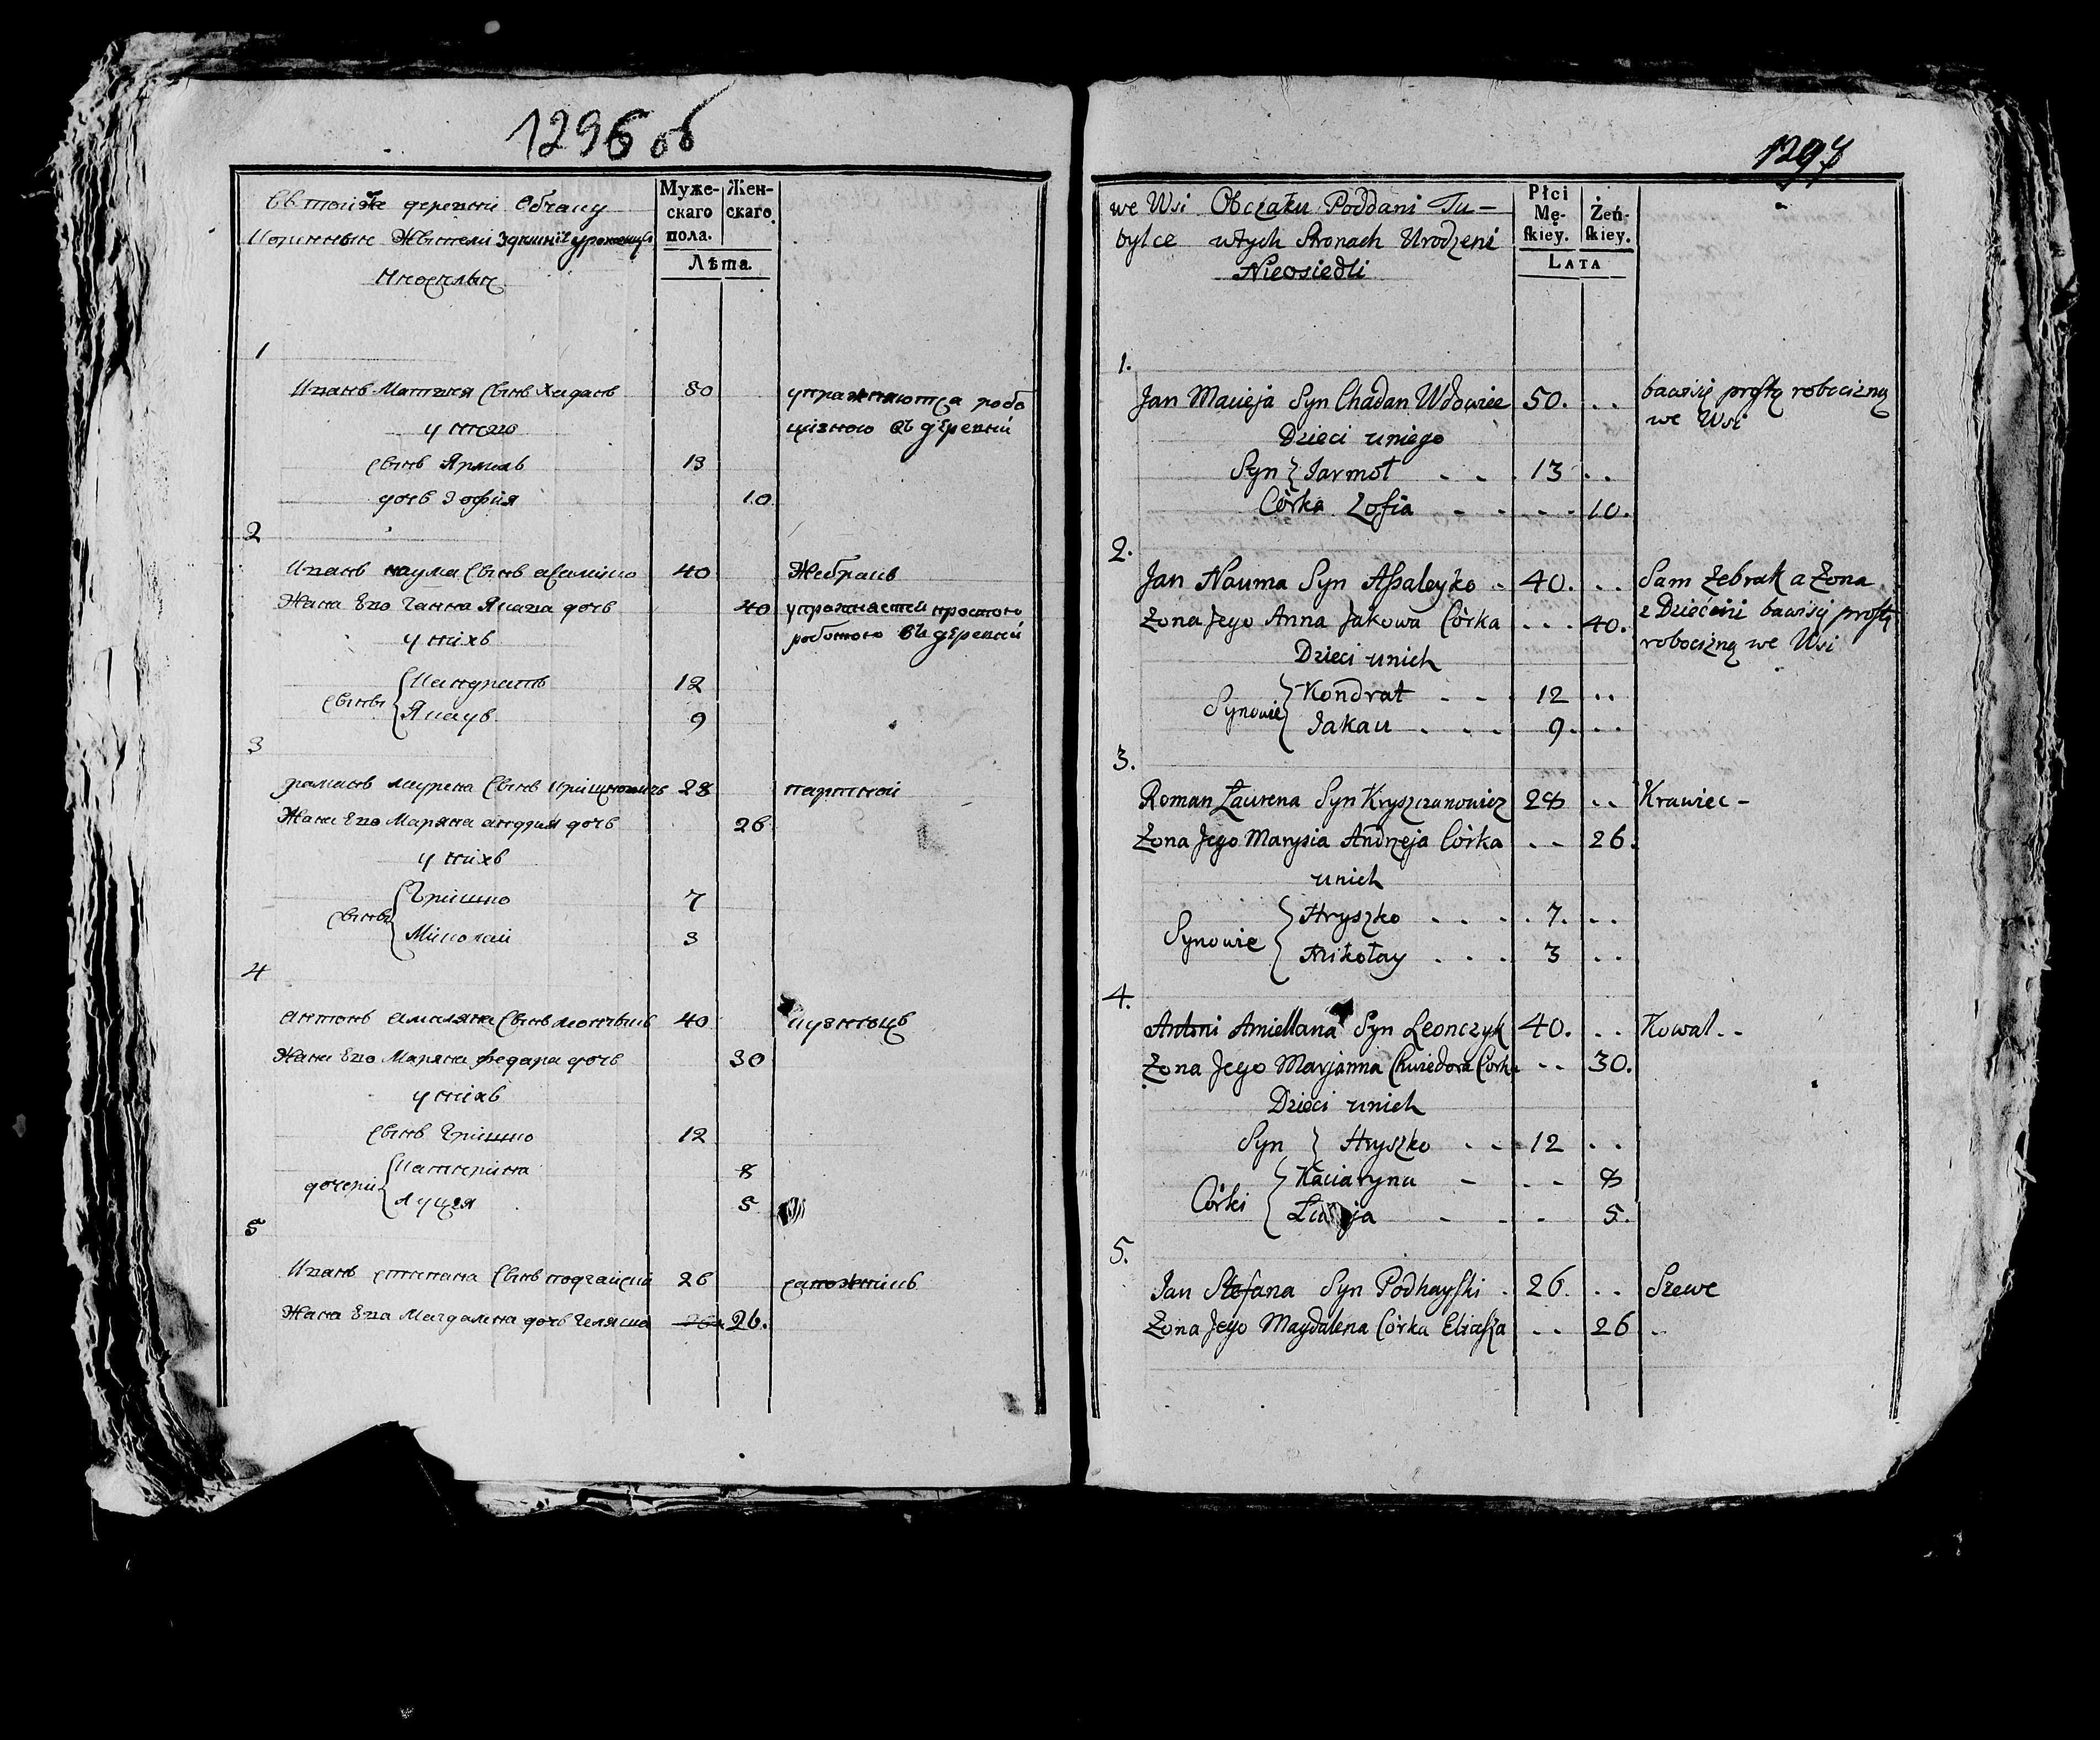 1296 об
Въ тойже деревни Обчаку
Коринные Жвители здешнiе уроженцы
Неоселые
Муже-
скаго
пола.
Жен-
скаго.
Лѣта.
1
Иванъ Матвея Сынъ Хаданъ 50 упражняются робо
у него цiзною Въ деревни
Сынъ Ярмолъ 13
дочь Зофия 10
2
Иванъ наума Сынъ 40 Жебракъ
Жана Его Ганна Якава дочь 40 упражняетей простою
у нiхъ роботою Въ деревни
Сыны Кандратъ 12
Якаув 9
3
раманъ лаурена Сынъ 28 партной
Жана Его Маряна андрея дочь 26
у нiхъ
Сыны Грiшко 7
Мiколай 3
4
Антонъ амиляна Сынъ 40 кузнецъ
Жана Его Маряна федара дочь 30
у нiхъ
Сынъ Грiшко 12
дочери Катерiна 8
Луцея 5
5
Иванъ степана Сынъ подгайскiй 26 сапожнiкъ
Жана Его Магдалена дочь Геляша 26.
1297
we Wsi Obczaku Poddani Tu-
bylce wtych Stronach Urodzeni
Nieosiedli
Płci
Mę-
skiey.
Żeń-
skiey.
LATA
1.
Jan Macieja Syn Chadan Wdowiec 50. . . bawisię prostą robocizną
Dzieci uniego we Wsi
Syn Jarmoł . . . 13 . .
Córka Zofia - - - - 10.
2.
Jan Nauma Syn Assaleyko - 40. . . Sam Żebrak a Żona
Żona Jego Anna Jakowa Córka . . . 40. z Dziećmi bawisię prostą
Dzieci unich robocizną we Wsi
Synowie Kondrat - - - 12 . .
Jakau . . . 9. . .
3.
Roman Łaurena Syn Kryszczanowicz 28 . . Krawiec -
Żona Jego Marysia Andrzeja Córka . - 26.
unich
Synowie Hryszko . . . . 7. . .
Mikołay . . . 3 . .
4.
Antoni Amiellana Syn Leonczyk 40. . . Kowal . -
Żona Jego Marjanna Chwiedora Córka . - 30.
Dzieci unich
Syn Hryszko - - 12 . .
Córki Kaciaryna - - - 8
- - - 5.
5.
Jan Stefana Syn Podhayski . 26. . . Szewc
Żona Jego Magdalena Córka Eliasza . . 26 .